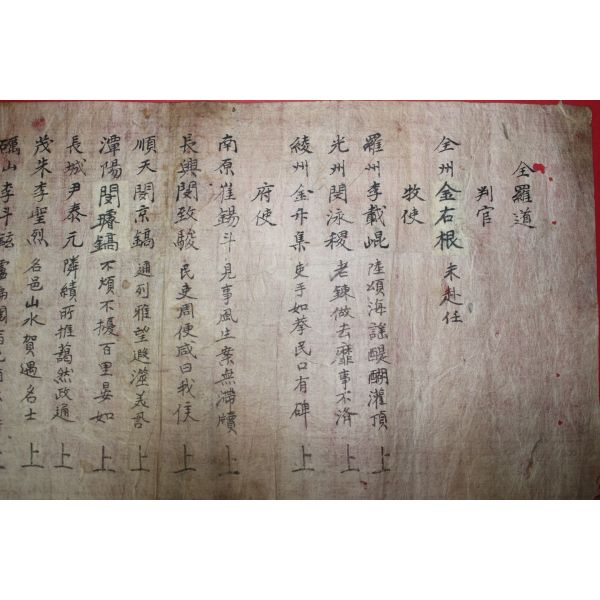 全羅道
判官
全州 金右根 未赴任
牧使
羅州 李載崐 陸頌海謠醍醐灌頂 上
光州 閔泳稷 老鍊做去靡事不濟 上
綾州 金升集 吏手如拳民口有碑 上
府使
南原 崔錫斗 見事風生案無滯牘 上
長興 閔致駿 民吏周便咸曰我侯 上
順天 閔京鎬 通列雅望遐遊美譽 上
潭陽 閔鎬 不煩不擾百里晏如 上
長城 尹泰元 隣績所推藹然政通 上
茂朱 李聖烈 名邑山水賀遇名士 上
礪山 李斗 上